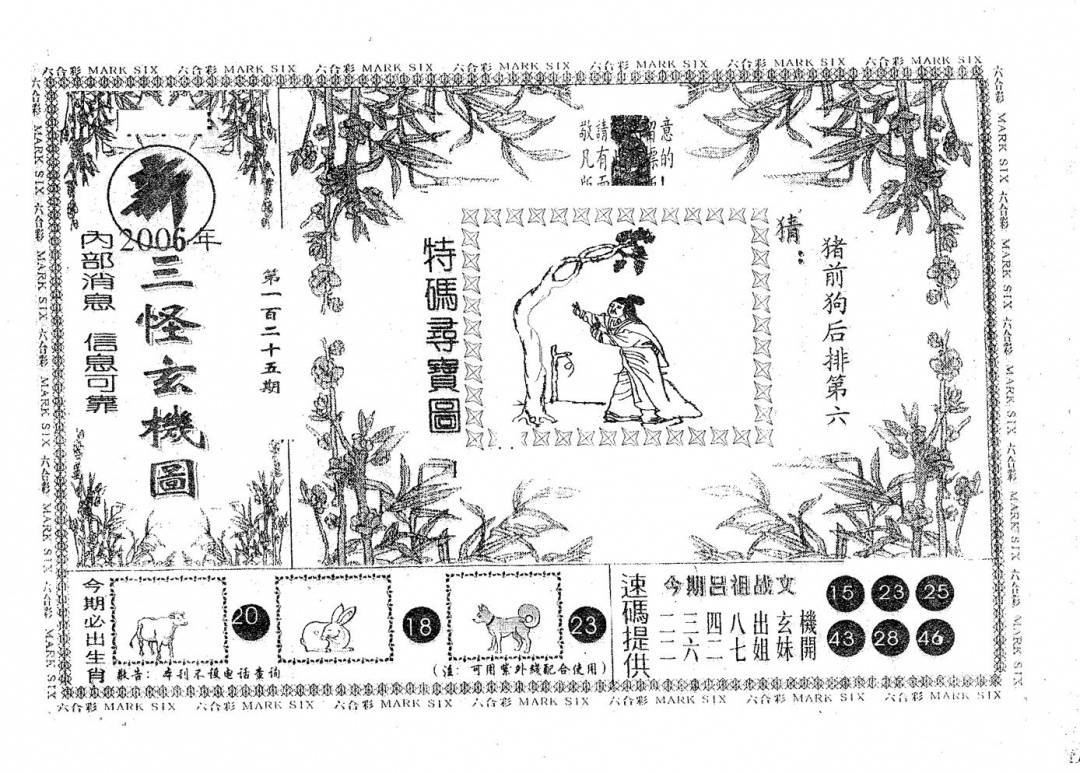 六合彩 MARK SIX 六合彩 MARK SIX 六合彩 MARK SIX 六合彩 MARK SIX 六合彩 MARK SIX 六合彩 MARK SIX 六合彩 MARK SIX
新
2006年
三怪玄機圖
內部消息 信息可靠
第一百二十五期
敬請 留意
凡有 的
特碼尋寶圖
猜：
猪前狗后排第六
今期必出生肖
20
18
23
敬告：本刊不设电话查询
(注：可用紫外线配合使用)
速碼提供
今期吕祖战文
二三四八出玄機
二六二七姐妹開
15 23 25
43 28 46
六合彩 MARK SIX 六合彩 MARK SIX 六合彩 MARK SIX 六合彩 MARK SIX 六合彩 MARK SIX 六合彩 MARK SIX 六合彩 MARK SIX